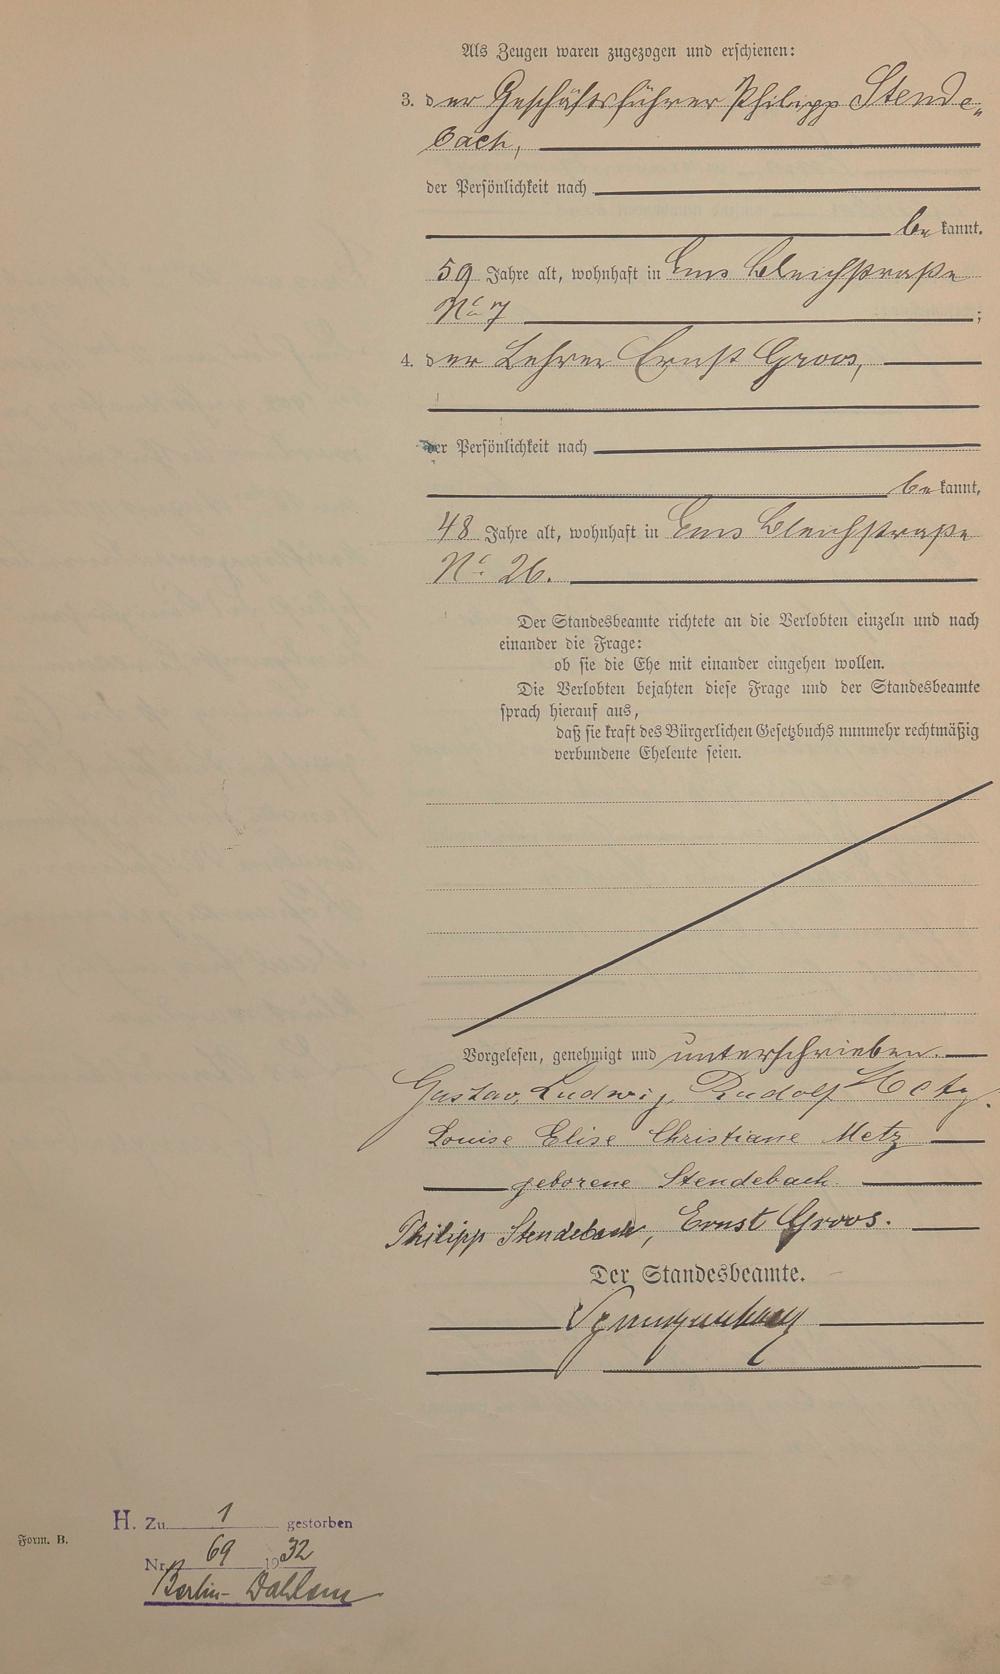 Als Zeugen waren zugezogen und erschienen:
3. der Geschäftsführer Philipp Stende-
bach,
der Persönlichkeit nach
be kannt,
59 Jahre alt, wohnhaft in Ems Bleichstraße
No 7 ;
4. der Lehrer Ernst Groos,
der Persönlichkeit nach
be kannt,
48 Jahre alt, wohnhaft in Ems Bleichstraße
No. 26.
Der Standesbeamte richtete an die Verlobten einzeln und nach
einander die Frage:
ob sie die Ehe mit einander eingehen wollen.
Die Verlobten bejahten diese Frage und der Standesbeamte
sprach hierauf aus,
daß sie kraft des Bürgerlichen Gesetzbuchs nunmehr rechtmäßig
verbundene Eheleute seien.
Vorgelesen, genehmigt und unterschrieben.
Gustav Ludwig Rudolf Metz.
Louise Elise Christiane Metz
geborene Stendebach.
Philipp Stendebach, Ernst Groos.
Der Standesbeamte.
H. Zu 1 gestorben
Form. B.
Nr. 69 1932
Berlin-Dahlem